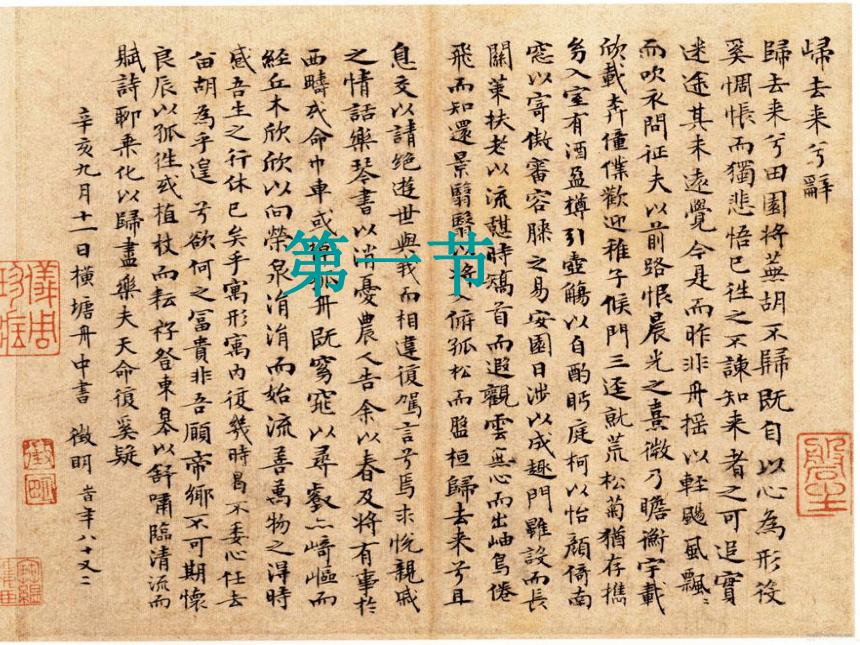 歸去来兮辭
歸去来兮田園將蕪胡不歸既自以心為形役
奚惆悵而獨悲悟已往之不諫知来者之可追實
迷途其未遠覺今是而昨非舟揺以輕颺風飄〻
而吹衣問征夫以前路恨晨光之熹微乃瞻衡宇載
欣載奔僮僕歡迎稚子候門三逕就荒松菊猶存攜
㓜入室有酒盈樽引壺觴以自酌眄庭柯以怡顔倚南
窓以寄傲審容膝之易安園日涉以成趣門雖設而長
關策扶老以流憩時矯首而遐觀雲無心而出岫鳥倦
飛而知還景翳翳以將入俯孤松而盤桓歸去来兮且
息交以請絶遊世與我而相違復駕言兮焉求悅親戚
之情話樂琴書以消憂農人告余以春及將有事於
西疇或命巾車或孤舟既窈窕以尋壑亦崎嶇而
經丘木欣欣以向榮泉涓涓而始流善萬物之得時
感吾生之行休已矣乎寓形寓内復幾時曷不委心任去
留胡為乎遑兮欲何之冨貴非吾願帝鄉不可期懷
良辰以孤往或植杖而耘耔登東臯以舒嘯臨清流而
賦詩聊乗化以歸盡樂夫天命復奚疑
辛亥九月十一日横塘舟中書 徵明 時年八十又二
第一节